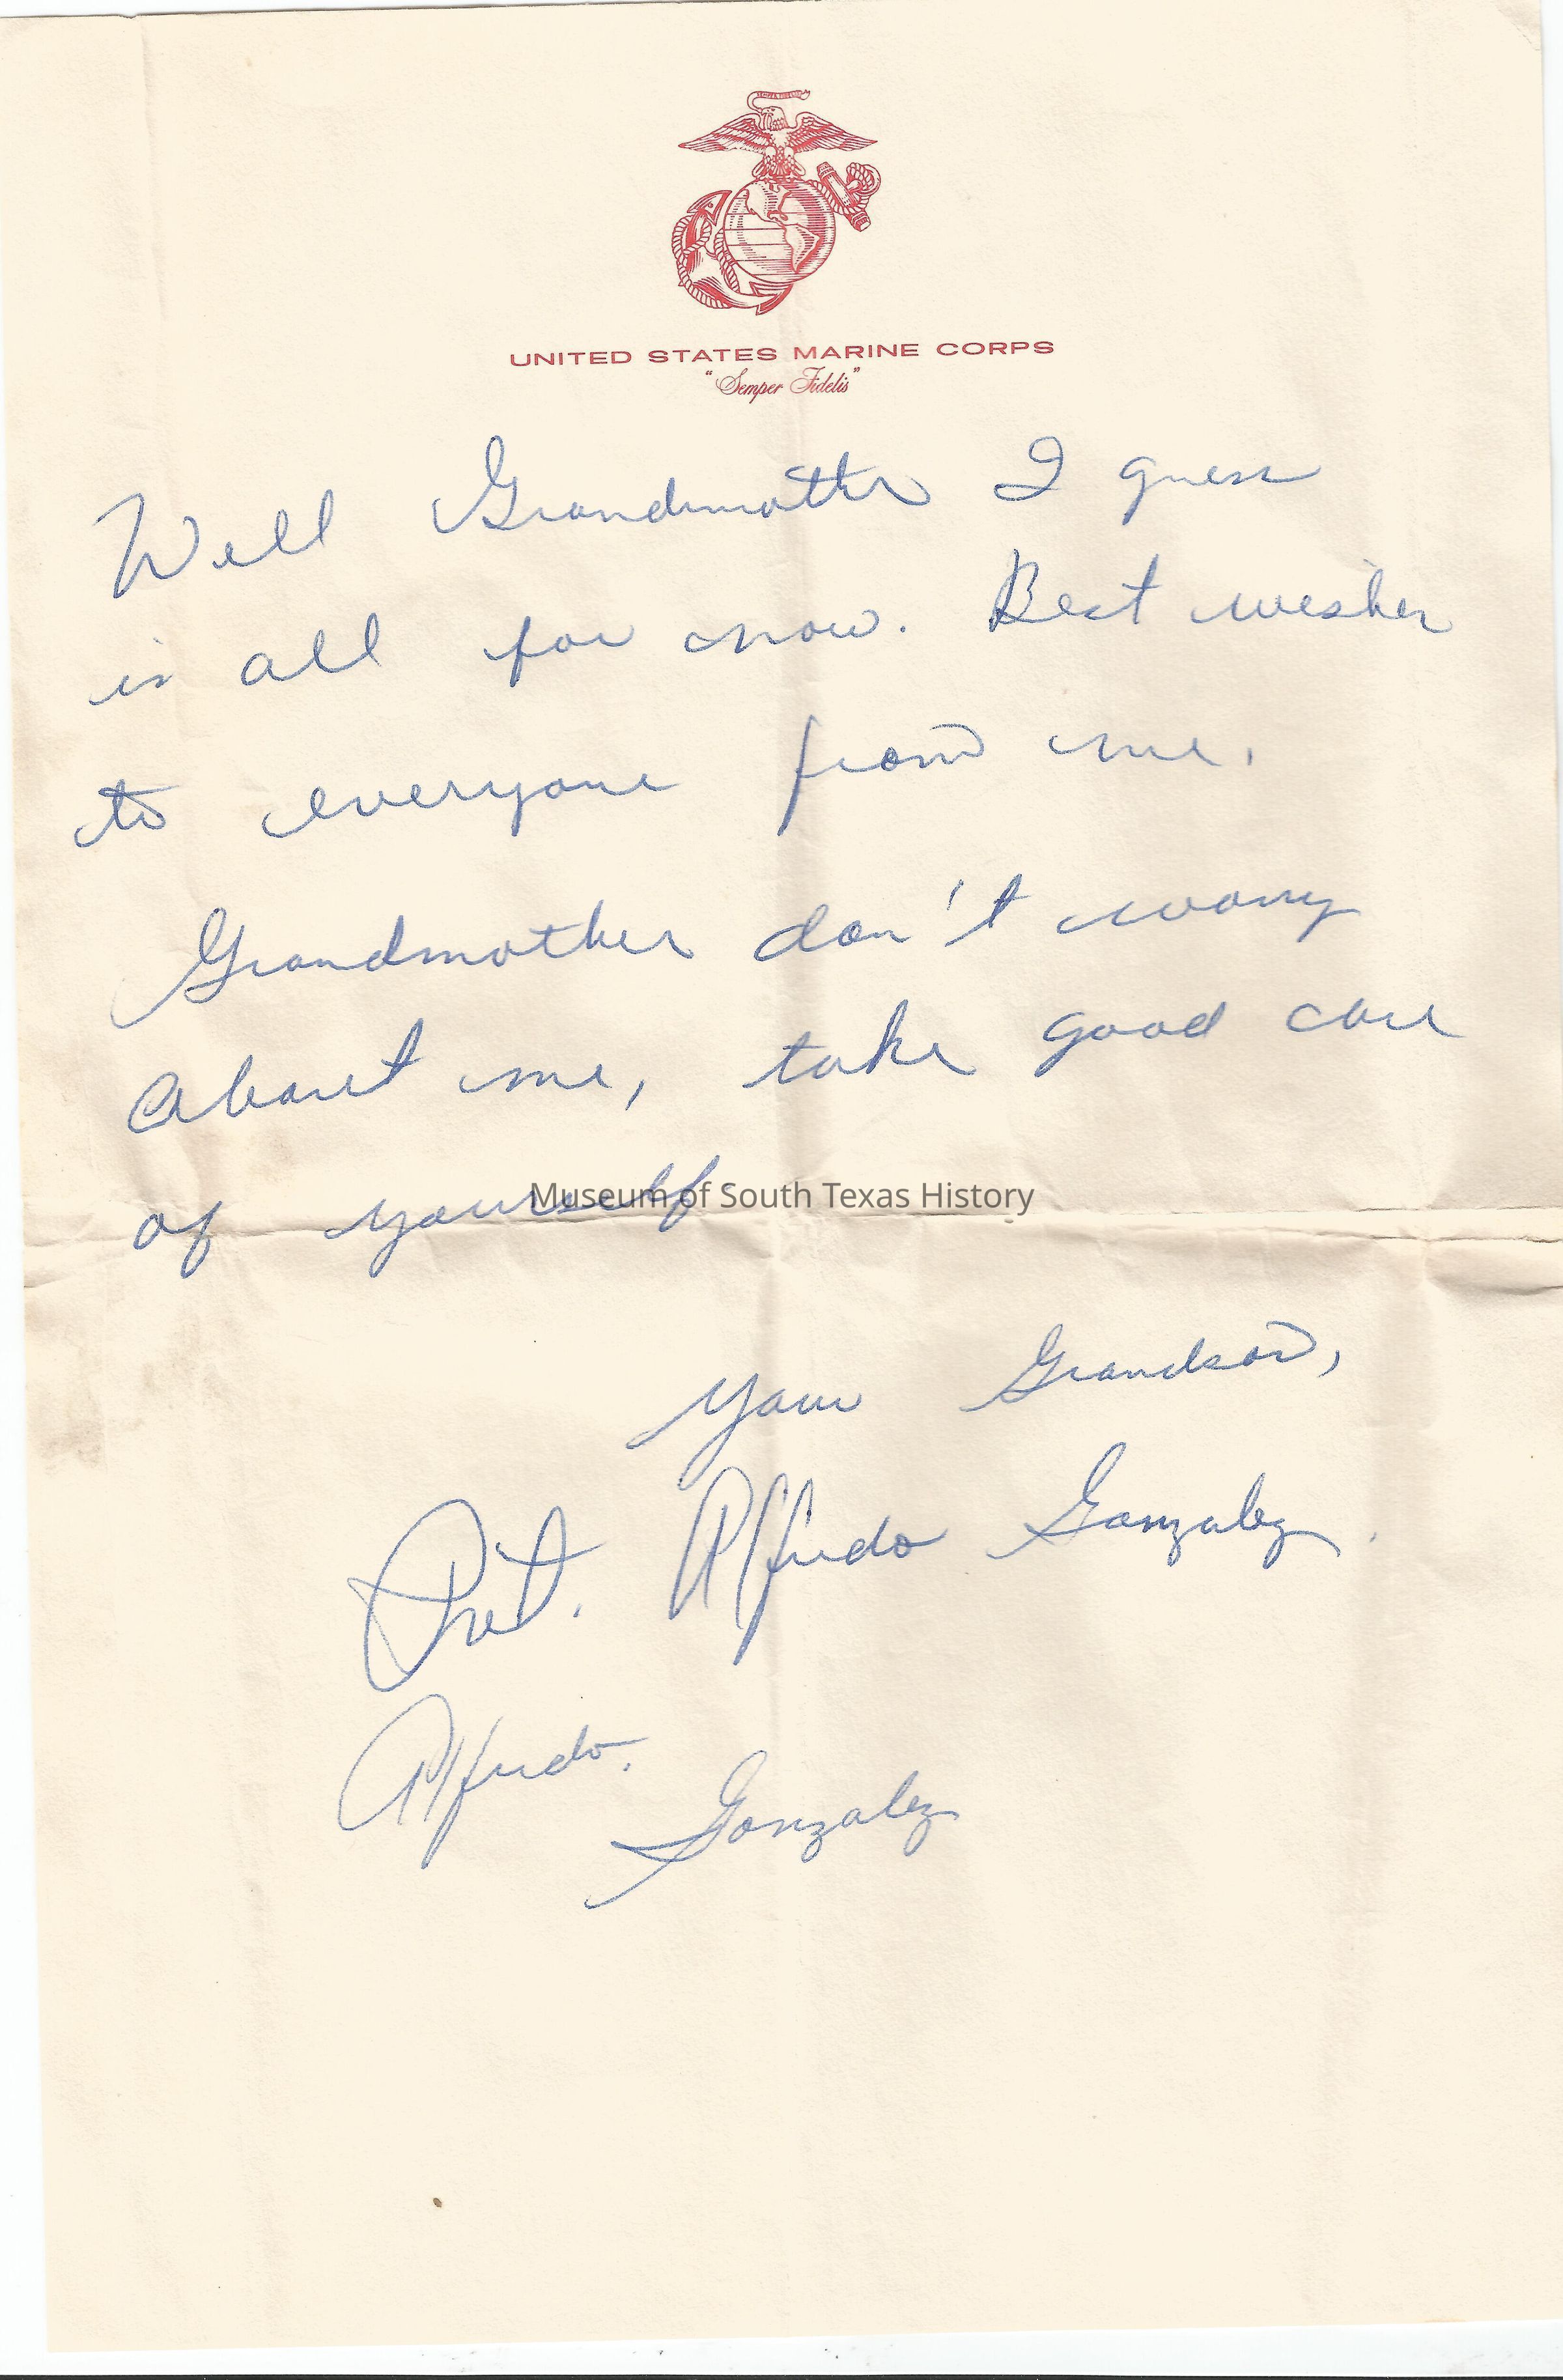 UNITED STATES MARINE CORPS
"Semper Fidelis"
Well Grandmother I guess
is all for now. Best wishes
to everyone from me.
Grandmother don't worry
about me, take good care
of yourself
Museum of South Texas History
Your Grandson,
Pvt. Alfredo Gonzalez.
Alfredo.
Gonzalez